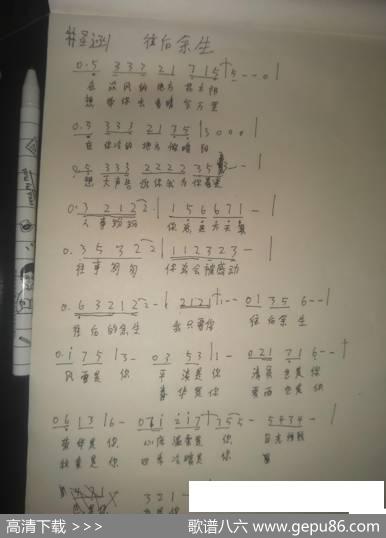 往后余生
0.5 333 21 715 | 5 - - 0 |
在没风的地方找太阳
想带你去看晴空万里
0.5 333 21 75 | 3 0 0 0 |
在你冷的地方做暖阳
0.5 333 2222 35 3 - - |
想大声告诉你我为你着迷
0.3 2122 - | 156671 - |
人事纷纷 你总太天真
0.3 5322 | 112323 - |
往事匆匆 你总会被感动
0.6 3212 2 - | 2121 1 - - 0135 6 - - |
往后的余生 我只要你 往后余生
0.1 75 | 3 - 03 53 | 1 - 021 71 6 - - |
风雪是你 平淡是你 清贫也是你
春华是你 夏雨也是你
061 3 | 6 - 061 217 | 35 5 - 5434 - |
荣华是你 心底温柔是你 目光所致
秋黄是你 四季冷暖是你
321 -
也是你
高清下载 >>> 歌谱八六 www.gepu86.com